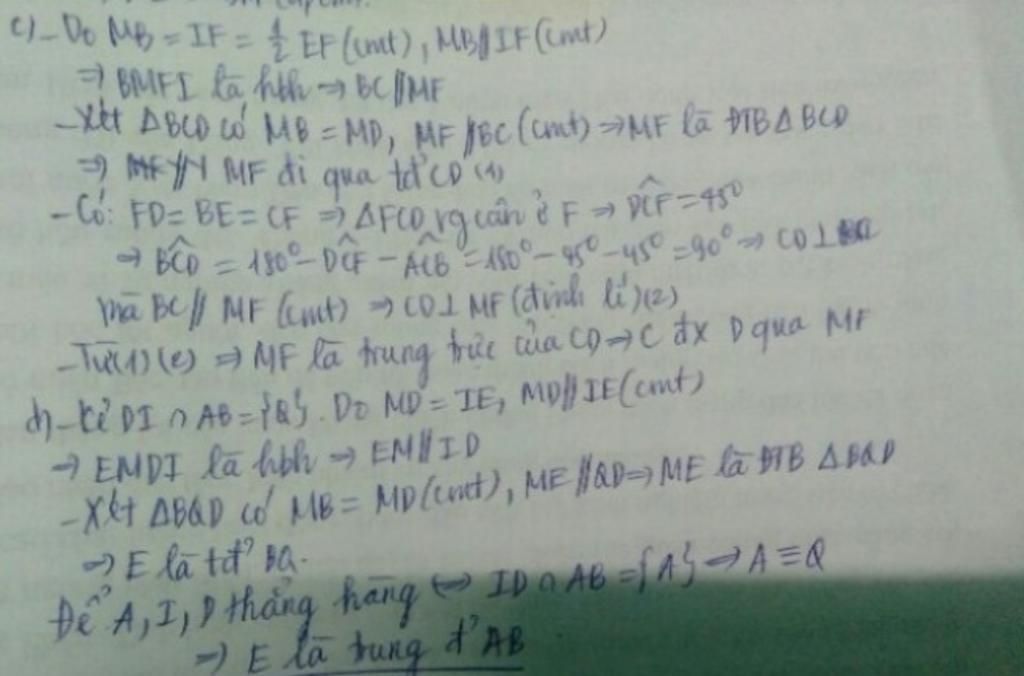 c) - Do MB = IF = 1/2 EF (cmt), MB // IF (cmt)
=> BMFI là hbh => BC // MF
- Xét ΔBCD có MB = MD, MF // BC (cmt) => MF là ĐTB ΔBCD
=> MF đi qua tđ' CD (1)
- Có: FD = BE = CF => ΔFCD vg cân ở F => DCF^ = 45°
=> BCD^ = 180° - DCF^ - ACB^ = 180° - 45° - 45° = 90° => CD ⊥ BC
mà BC // MF (cmt) => CD ⊥ MF (định lí) (2)
- Từ (1) (2) => MF là trung trực của CD => C đx D qua MF
d) - Kẻ DI ∩ AB = {Q}. Do MD = IE, MD // IE (cmt)
=> EMDI là hbh => EM // ID
- Xét ΔBQD có MB = MD (cmt), ME // QD => ME là ĐTB ΔBQD
=> E là tđ' BQ.
Để A, I, D thẳng hàng <=> ID ∩ AB = {A} => A ≡ Q
=> E là trung đ' AB